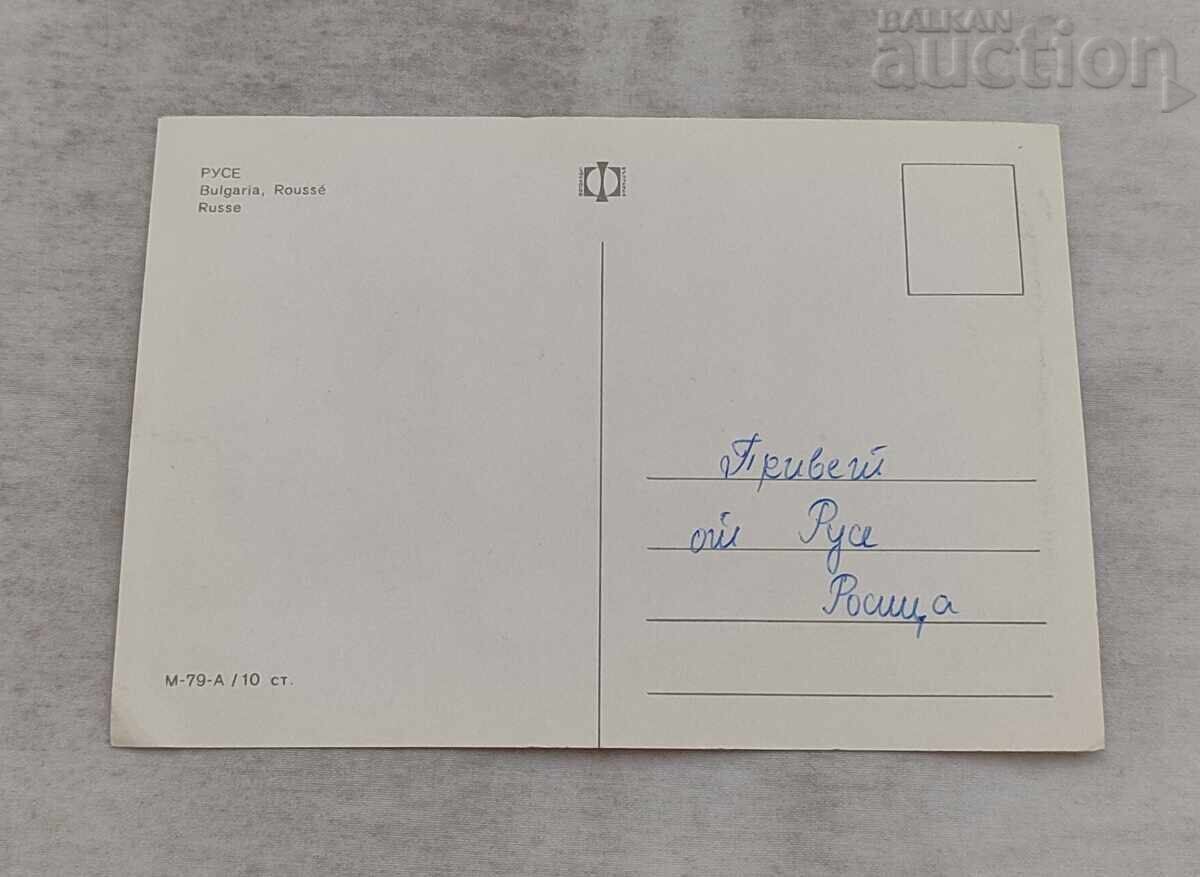 BALKAN
auction
РУСЕ
Bulgaria, Roussé
Russe
Привет
от Русе
Росица
М-79-А / 10 ст.